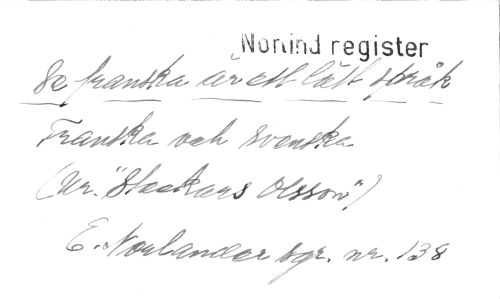 Norlind register
Se franska är ett lätt språk
Franska och svenska
(Ur. "Stackars Olsson")
E. Norlander sgr. nr. 138